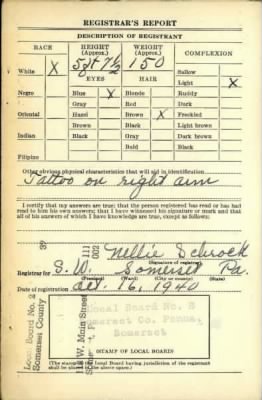 REGISTRAR'S REPORT
DESCRIPTION OF REGISTRANT
RACE HEIGHT (Approx.) WEIGHT (Approx.) COMPLEXION
5 ft 7 1/2 150
White X Sallow
EYES HAIR Light X
Negro Blue X Blonde Ruddy
Gray Red Dark
Oriental Hazel Brown X Freckled
Brown Black Light brown
Indian Black Gray Dark brown
Bald Black
Filipino
Other obvious physical characteristics that will aid in identification
Tattoo on right arm
I certify that my answers are true; that the person registered has read or has had
read to him his own answers; that I have witnessed his signature or mark and that
all of his answers of which I have knowledge are true, except as follows:
39
111
002
Nellie Schrock
(Signature of registrar)
Registrar for S.W. Somerset Pa.
(Precinct) (Ward) (City or county) (State)
Date of registration Oct. 16, 1940
Local Board No. 2
Somerset County
118 W. Main Street
Local Board No. 2
Somerset Co. Penna.
Somerset
(STAMP OF LOCAL BOARD)
(The stamp of the Local Board having jurisdiction of the registrant
shall be placed in the above space.)